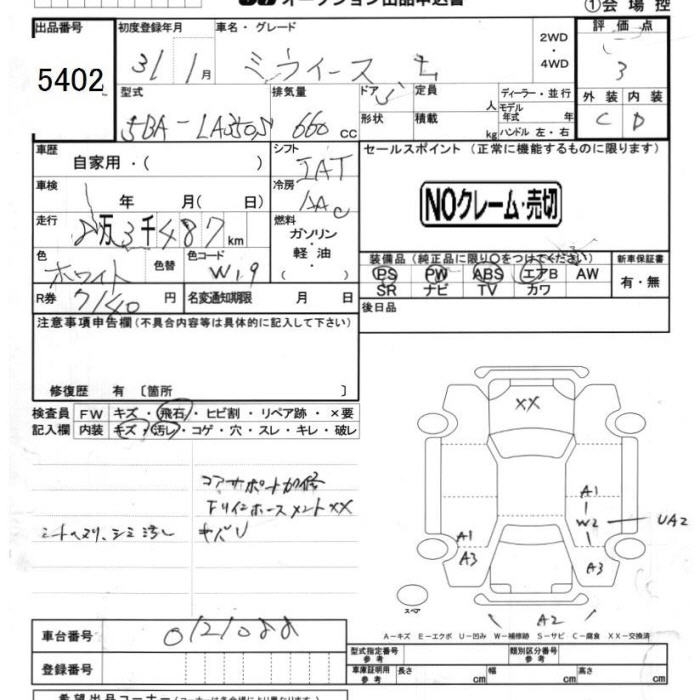 オークション出品申込書
①会場控
出品番号
5402
初度登録年月
31 1月
車名・グレード
ミライース L
2WD
・
4WD
評価点
3
型式
5BA-LA350S
排気量
660 cc
ドア 5
形状
定員 人
積載 kg
ディーラー・並行
モデル年式 年
ハンドル 左・右
外装 内装
C D
車歴
自家用・( )
シフト
IAT
セールスポイント (正常に機能するものに限ります)
NOクレーム・売切
車検
年 月( 日)
冷房
AAC
走行
8万3千487km
燃料
ガソリン
・
軽油
・
( )
色
ホワイト
色替
色コード
W19
装備品 (純正品に限り○をつけてください)
新車保証書
PS PW ABS エアB AW
SR ナビ TV カワ
有・無
R券 7140 円
名変通知期限 月 日
後日品
注意事項申告欄(不具合内容等は具体的に記入して下さい)
修復歴 有〔箇所 〕
検査員
記入欄
FW キズ・飛石・ヒビ割・リペア跡・×要
内装 キズ・汚レ・コゲ・穴・スレ・キレ・破レ
コアサポート加修
XX
A1
W2
UA2
A1
A3
A3
A2
スペア
A-キズ E-エクボ U-凹み W-補修跡 S-サビ C-腐食 XX-交換済
車台番号
0121088
登録番号
型式指定番号
参考
類別区分番号
参考
車庫証明用
参考
長さ cm
幅 cm
高さ cm
希望出品コーナー(コーナーは各会場により異なります)